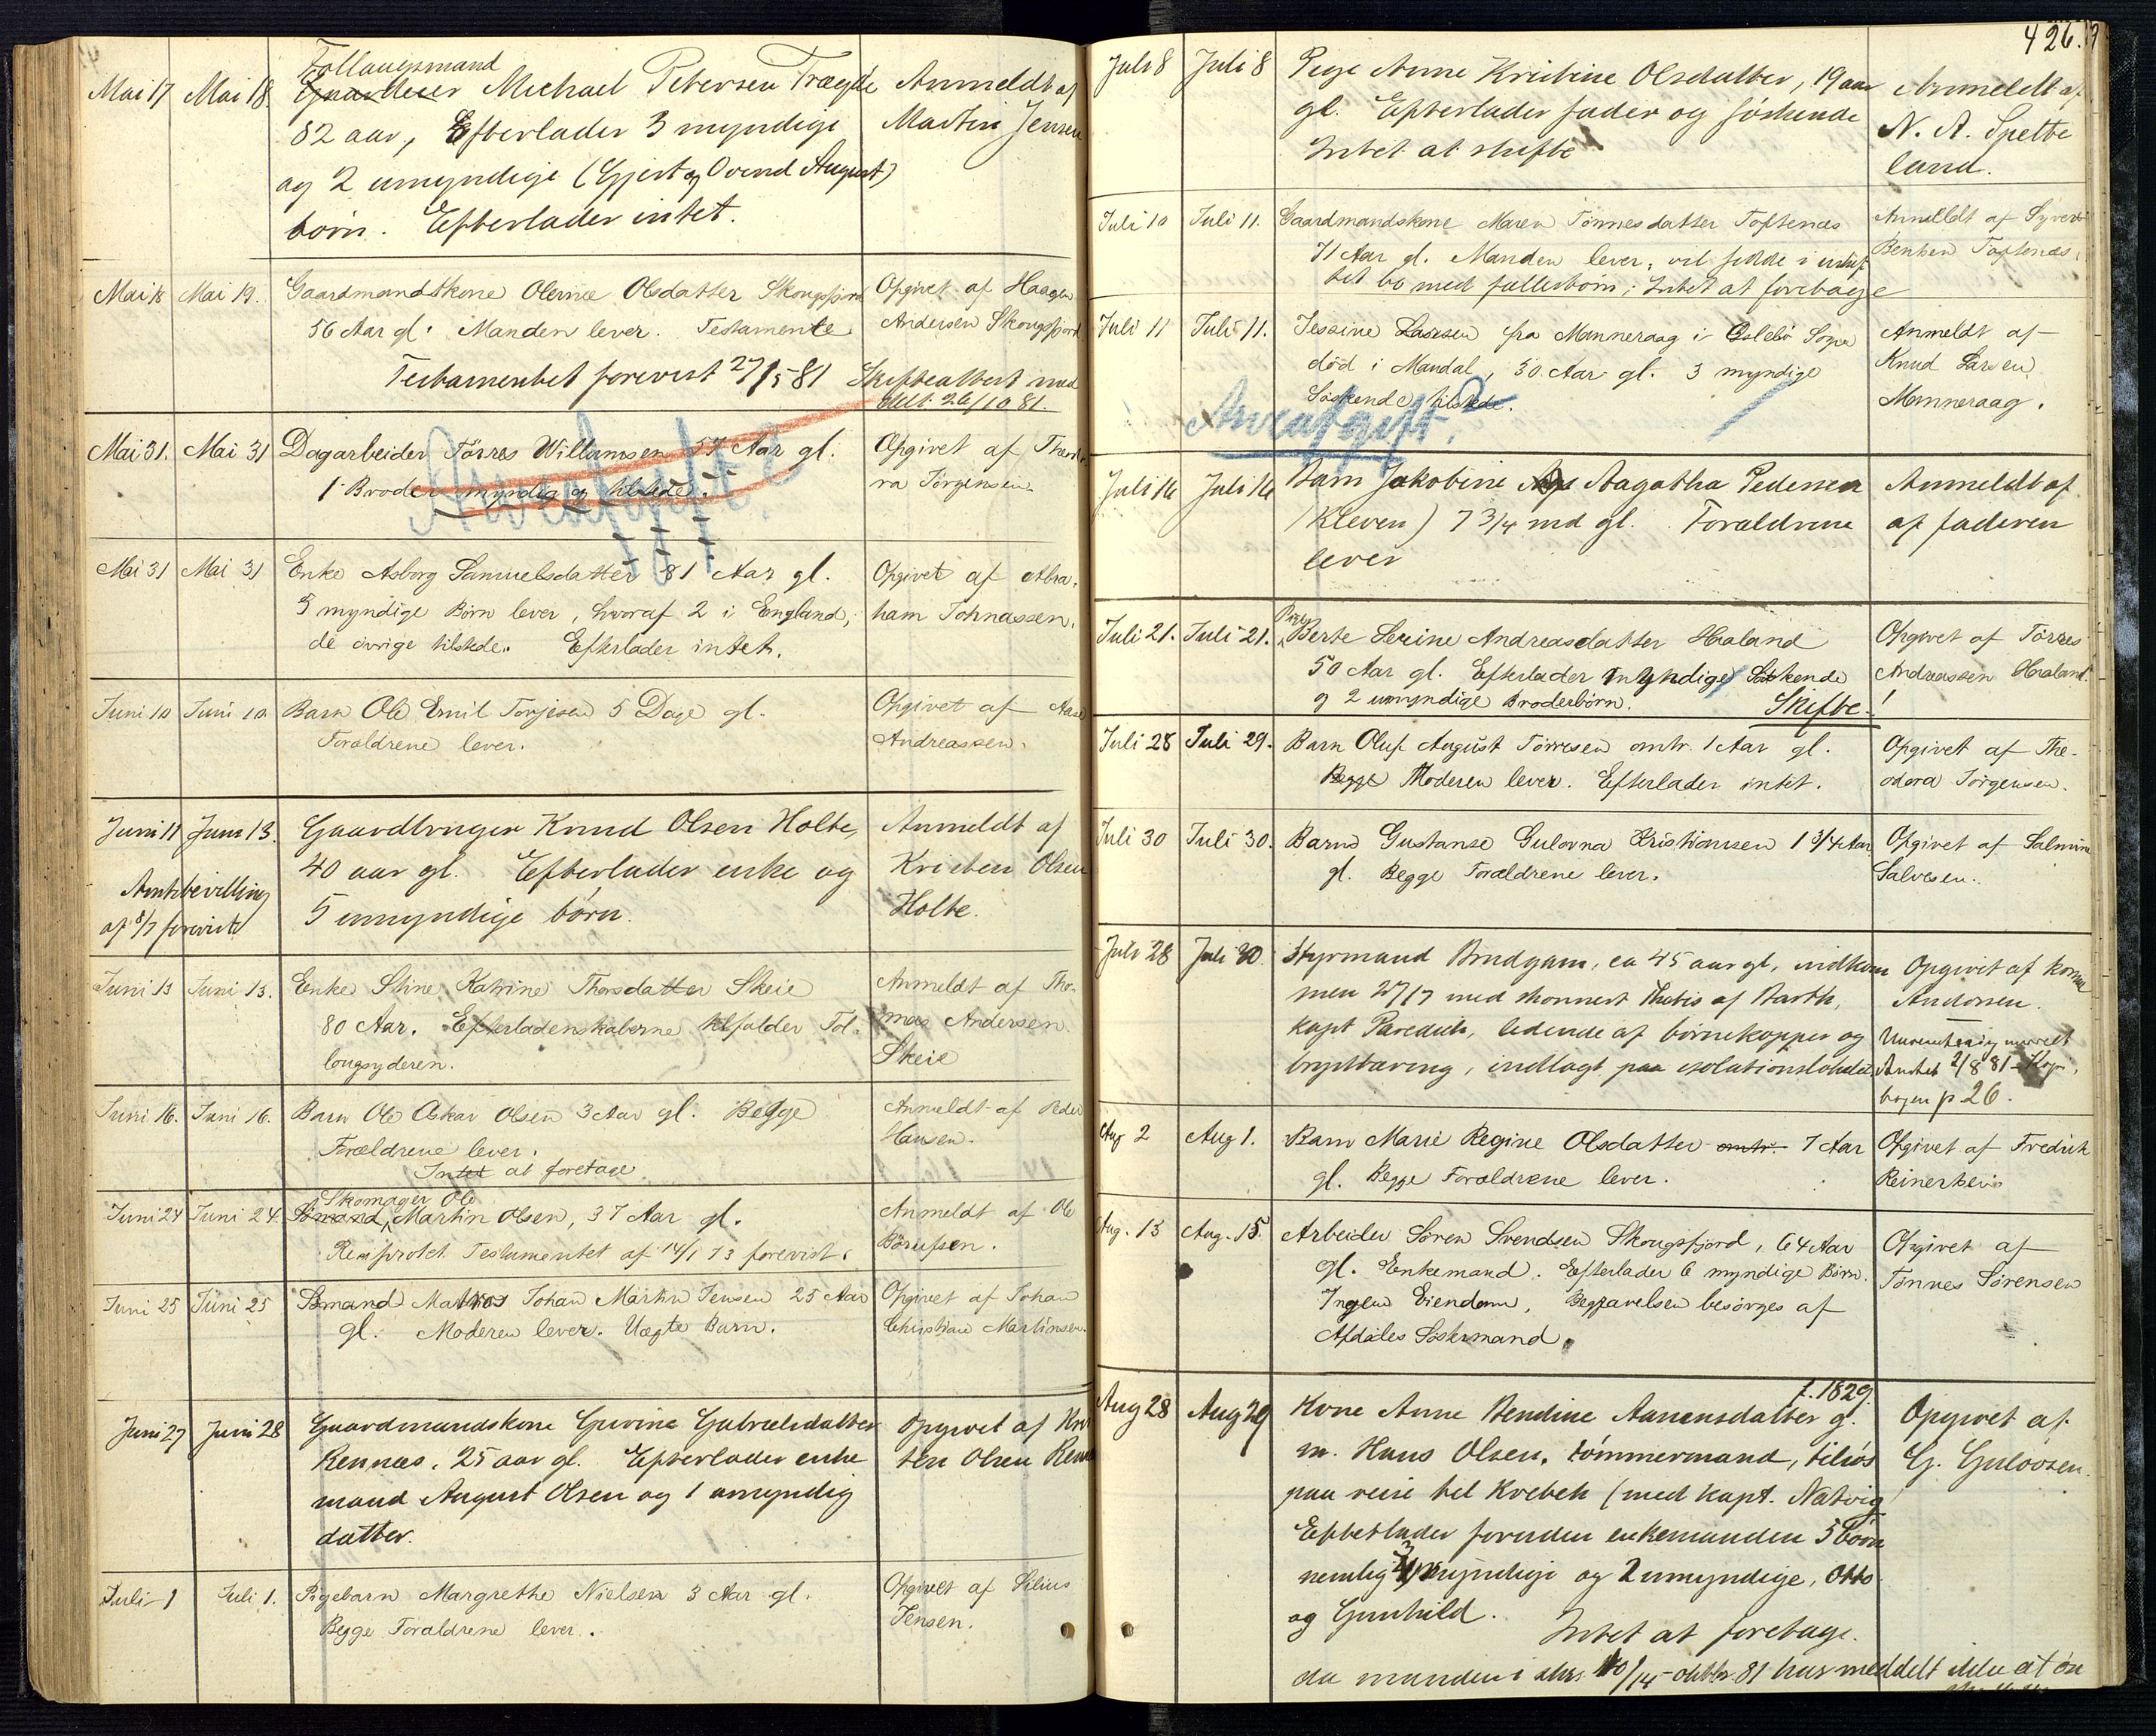 Mai 17 Mai 18. Follaugsmand
Gaardbruger Michael Petersen Trægde Anmeldt af
82 aar, Efterlader 3 myndige Martin Jensen
og 2 umyndige (Gjert og Ovend August)
børn. Efterlader intet.
Mai 18 Mai 19. Gaardmandskone Olerne Olsdatter Skougsfjord Opgivet af Haagen
56 Aar gl. Manden lever. Testamente Andersen Skougsfjord
Testamentet forevist 27/5 81 Skifteattest med
delt 26/10 81.
Mai 31. Mai 31 Dagarbeider Tørres Willumsen 57 Aar gl. Opgivet af Theodo
1 Broder myndig og tilstede. ra Jørgensen
Arveafgift?
Mai 31 Mai 31 Enke Asborg Samuelsdatter 81 Aar gl. Opgivet af Abra-
5 myndige Børn lever, hvoraf 2 i England, ham Johnassen.
de øvrige tilstede. Efterlader intet.
Juni 10 Juni 10. Barn Ole Emil Torjesen 5 Dage gl. Opgivet af Aase
Forældrene lever. Andreassen.
Juni 11 Juni 13. Gaardbruger Knud Olsen Holte, Anmeldt af
40 aar gl. Efterlader enke og Kristen Olsen
5 umyndige børn. Holte.
Amtsbevilling
af 8/7 forevist
Juni 13 Juni 13. Enke Stine Katrine Thorsdatter Skeie Anmeldt af Tho-
80 Aar. Efterladenskaberne tilfalder Fol- mas Andersen
lougsyderen. Skeie
Juni 16. Juni 16. Barn Ole Oskar Olsen 3 Aar gl. Begge Anmeldt af Peder
Forældrene lever. Hansen.
Intet at foretage
Juni 24 Juni 24. Skomager Ole
Sømand Martin Olsen, 37 Aar gl. Anmeldt af Ole
Testamentet af 14/1 73 forevist.
Juni 25 Juni 25 Sømand Matros Johan Martin Jensen 25 Aar Opgivet af Johan
gl. Moderen lever. Uægte Barn. Christian Martinsen.
Juni 27 Juni 28 Gaardmandskone Gurine Gabrielsdatter Opgivet af Kris
Rennæs, 25 aar gl. Efterlader enke ten Olsen Rennæs
mand August Olsen og 1 umyndig
datter.
Juli 1 Juli 1. Pigebarn Margrethe Nielsen 3 Aar gl. Opgivet af Silius
Begge Forældrene lever. Jensen.
426.
Juli 8 Juli 8 Pige Anne Kristine Olsdatter, 19 aar Anmeldt af
gl. Efterlader fader og søskende N. A. Spette
Intet at skifte land.
Juli 10 Juli 11. Gaardmandskone Maren Tønnesdatter Toftenæs Anmeldt af Syvert
71 Aar gl. Manden lever, vil sidde i uskif Bentsen Toftenæs.
tet bo med fællesbørn; Intet at foretage
Juli 11 Juli 11. Jessine Larsen fra Manneraag i Øslebø Sogn Anmeldt af
død i Mandal, 30 Aar gl. 3 myndige Knud Larsen
Søskende tilstede. Manneraag.
Arveafgift.
Juli 16 Juli 16 Barn Jakobine Aagatha Pedersen Anmeldt af
(Kleven) 7 3/4 md gl. Forældrene af faderen
lever
Juli 21. Juli 21. Pige
Berte Serine Andreasdatter Haaland Opgivet af Tørres
50 Aar gl. Efterlader myndige Søskende Andreassen Haaland.
og 2 umyndige Broderbørn. Skifte!
Juli 28 Juli 29. Barn Oluf August Tørresen omtr. 1 Aar gl. Opgivet af The-
Begge Moderen lever. Efterlader intet. odora Jørgensen.
Juli 30 Juli 30. Barnd Gustanse Gulovna Kristiansen 1 3/4 Aar Opgivet af Salmine
gl. Begge Forældrene lever. Salvesen.
Juli 28 Juli 30. Styrmand Brudgam, ca 45 aar gl, indkom Opgivet af
men 27/7 med skonnert Thetis af Barth, Andersen.
kapt , lidende af børnekopper og
brysttæring, indlagt paa isolationslokalet 2/8 81 Kopi
bogen p. 26.
Aug 2 Aug 1. Barn Marie Regine Olsdatter omtr. 7 Aar Opgivet af Fredrik
gl. Begge Forældrene lever. Reinertsen
Aug. 13 Aug. 15. Arbeider Søren Svendsen Skougsfjord, 64 Aar Opgivet af
gl. Enkemand. Efterlader 6 myndige Børn. Tønnes Sørensen
Ingen Eiendom, Begravelsen besørges af
Afdøles Søskermand.
Aug 28 Aug 29 f. 1829.
Kone Anne Bendine Aanensdatter g. Opgivet af
m. Hans Olsen, tømmermand, tilsøs G. Guloosen.
paa reise til Kvebek (med kapt. Natvig
Efterlader foruden enkemanden 5 børn
nemlig 3 myndige og 2 umyndige, Otto
og Gunhild.
Intet at foretage.
da manden i skr. 10/14 oktbr. 81 har meddelt ikke at